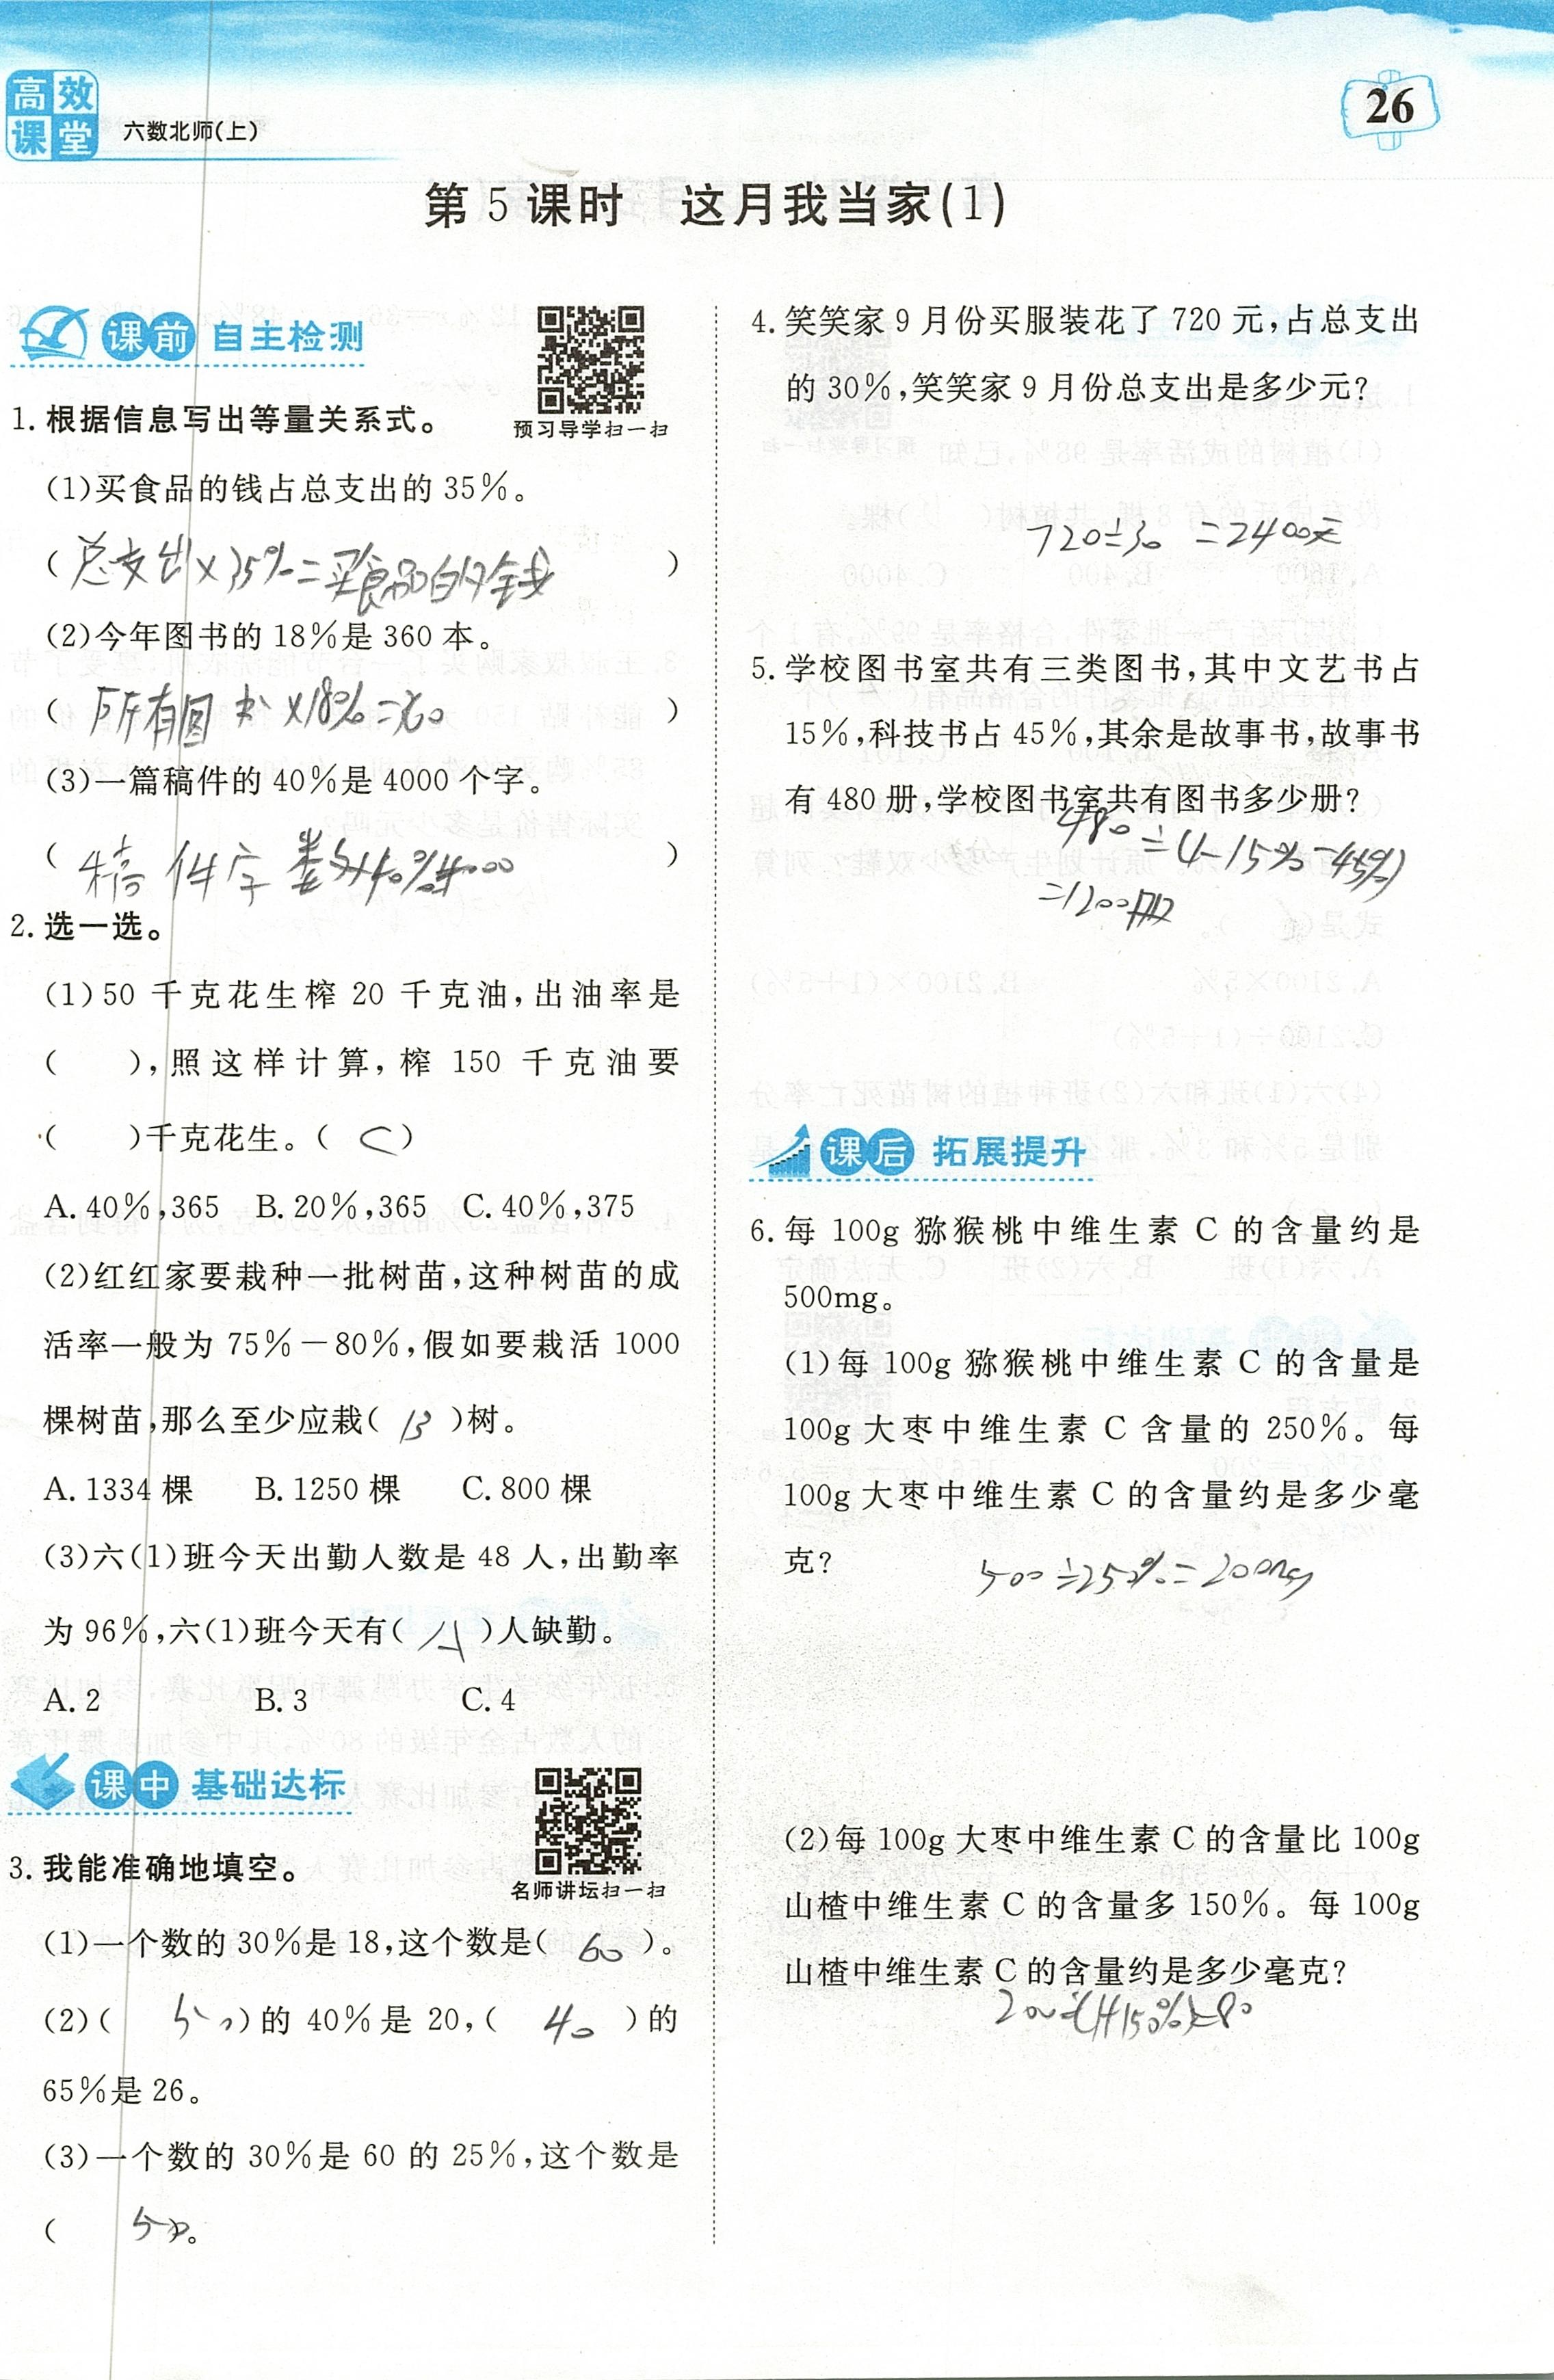 高效课堂
六数北师(上)
26
第5课时 这月我当家(1)
课前 自主检测
预习导学扫一扫
1.根据信息写出等量关系式。
(1)买食品的钱占总支出的35%。
(总支出×35%=买食品的钱)
(2)今年图书的18%是360本。
(所有图书×18%=360)
(3)一篇稿件的40%是4000个字。
(稿件字数×40%=4000)
2.选一选。
(1)50千克花生榨20千克油,出油率是
( ),照这样计算,榨150千克油要
( )千克花生。( C )
A.40%,365 B.20%,365 C.40%,375
(2)红红家要栽种一批树苗,这种树苗的成
活率一般为75%-80%,假如要栽活1000
棵树苗,那么至少应栽( B )树。
A.1334棵 B.1250棵 C.800棵
(3)六(1)班今天出勤人数是48人,出勤率
为96%,六(1)班今天有( A )人缺勤。
A.2 B.3 C.4
课中 基础达标
名师讲坛扫一扫
3.我能准确地填空。
(1)一个数的30%是18,这个数是( 60 )。
(2)( 50 )的40%是20,( 40 )的
65%是26。
(3)一个数的30%是60的25%,这个数是
( 50 )。
4.笑笑家9月份买服装花了720元,占总支出
的30%,笑笑家9月份总支出是多少元?
720÷30 =2400元
5.学校图书室共有三类图书,其中文艺书占
15%,科技书占45%,其余是故事书,故事书
有480册,学校图书室共有图书多少册?
480÷(1-15%-45%)
=1200册
课后 拓展提升
6.每100g猕猴桃中维生素C的含量约是
500mg。
(1)每100g猕猴桃中维生素C的含量是
100g大枣中维生素C含量的250%。每
100g大枣中维生素C的含量约是多少毫
克?
500÷250%=200mg
(2)每100g大枣中维生素C的含量比100g
山楂中维生素C的含量多150%。每100g
山楂中维生素C的含量约是多少毫克?
200÷(1+150%)=80